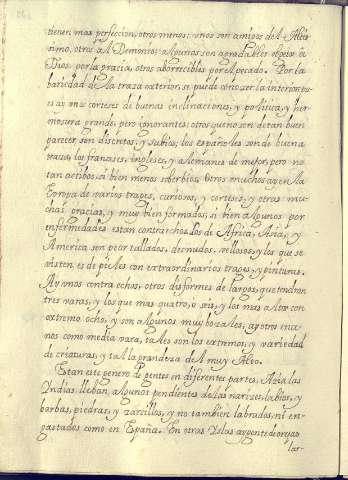 tienen mas perfeccion, otros menos: unos son amigos del Altis
simo, otros del Demonio; algunos son agradables objetos a
Dios por la gracia, otros aborrecibles por el pecado. Por la
bariedad de la traza exterior, se puede conozer la interior; pu
es ay unos cortezes de buenas inclinaciones, y politica, y her
mosura grande, pero ignorantes; otros que no son de tan buen
parecer son discretos, y sabios; los españoles son de buena
teaza, los franzeses, ingleses, y alemanes de mejor, pero no
tan activos, si bien menos soberbios. Otros muchos ay en la
Europa de varios trages, curiosos, y corteses, y otras mu-
chas gracias, y muy bien formados, si bien algunos por
enfermedades estan contrahechos. Los de Africa, Asia, y
America son peor tallados, desnudos, vellosos, y los que se
visten, es de pieles con extraordinarios trages, y pinturas.
Ay unos contra echos, otros disformes de largos, que tendran
tres varas, y los que mas quatro, o seis, y los mas altos con
extremo ocho, y son algunos muy bozales; ay otros ena-
nos como media vara, tales son los extremos, y variedad
de criaturas, y tal la grandeza del muy Alto.
Estan este genero de gentes en diferentes partes. Azia las
Yndias lleban algunos pendientes de las narizes, labios, y
borbas, piedras, y zarzillos, y no tambien labrados, ni en-
gastados como en España. En otras Yslas ay gente di
las-